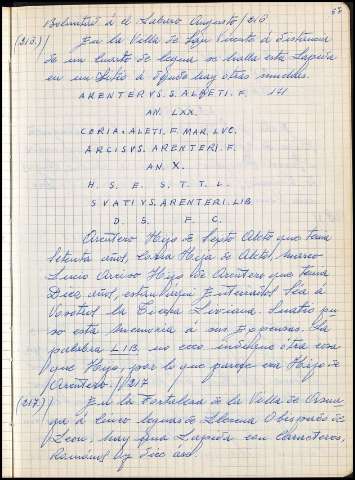 67
Bolunted á el Labrero Augusto/216
(216.)/ En la Villa de San Vicente á distancia
de un cuarto de legua se halla esta Lapida
en un Sitio á donde hay otras muchas.
ARENTERVS. S. ALBETI. F. 141
AN. LXX.
CORIA. ALETI. F. MAR. LVC.
ARCISVS. ARENTERI. F.
AN. X.
H. S. E. S. T. T. L.
SVATIVS. ARENTERI. LIB.
D. S. F. C.
Arentero Hijo de Sexto Aleto que tenia
setenta años, Coria Hija de Aleto, Marco
Lucio Arciso Hijo de Arentero que tenia
Diez años, estan aqui Enterrados Sea á
Vosotros la Tierra Liviana. Suatio pu
so esta memoria á sus Expensas. La
palabra LIB. no creo indique otra cosa
que Hijo, por lo que parece era Hijo de
Arentero./217
(217.)/ En la Fortaleza de la Villa de
á Cinco leguas de Llerena Obispado de
Leon, hay una Lapida con Caracteres
Romanos y dice asi.